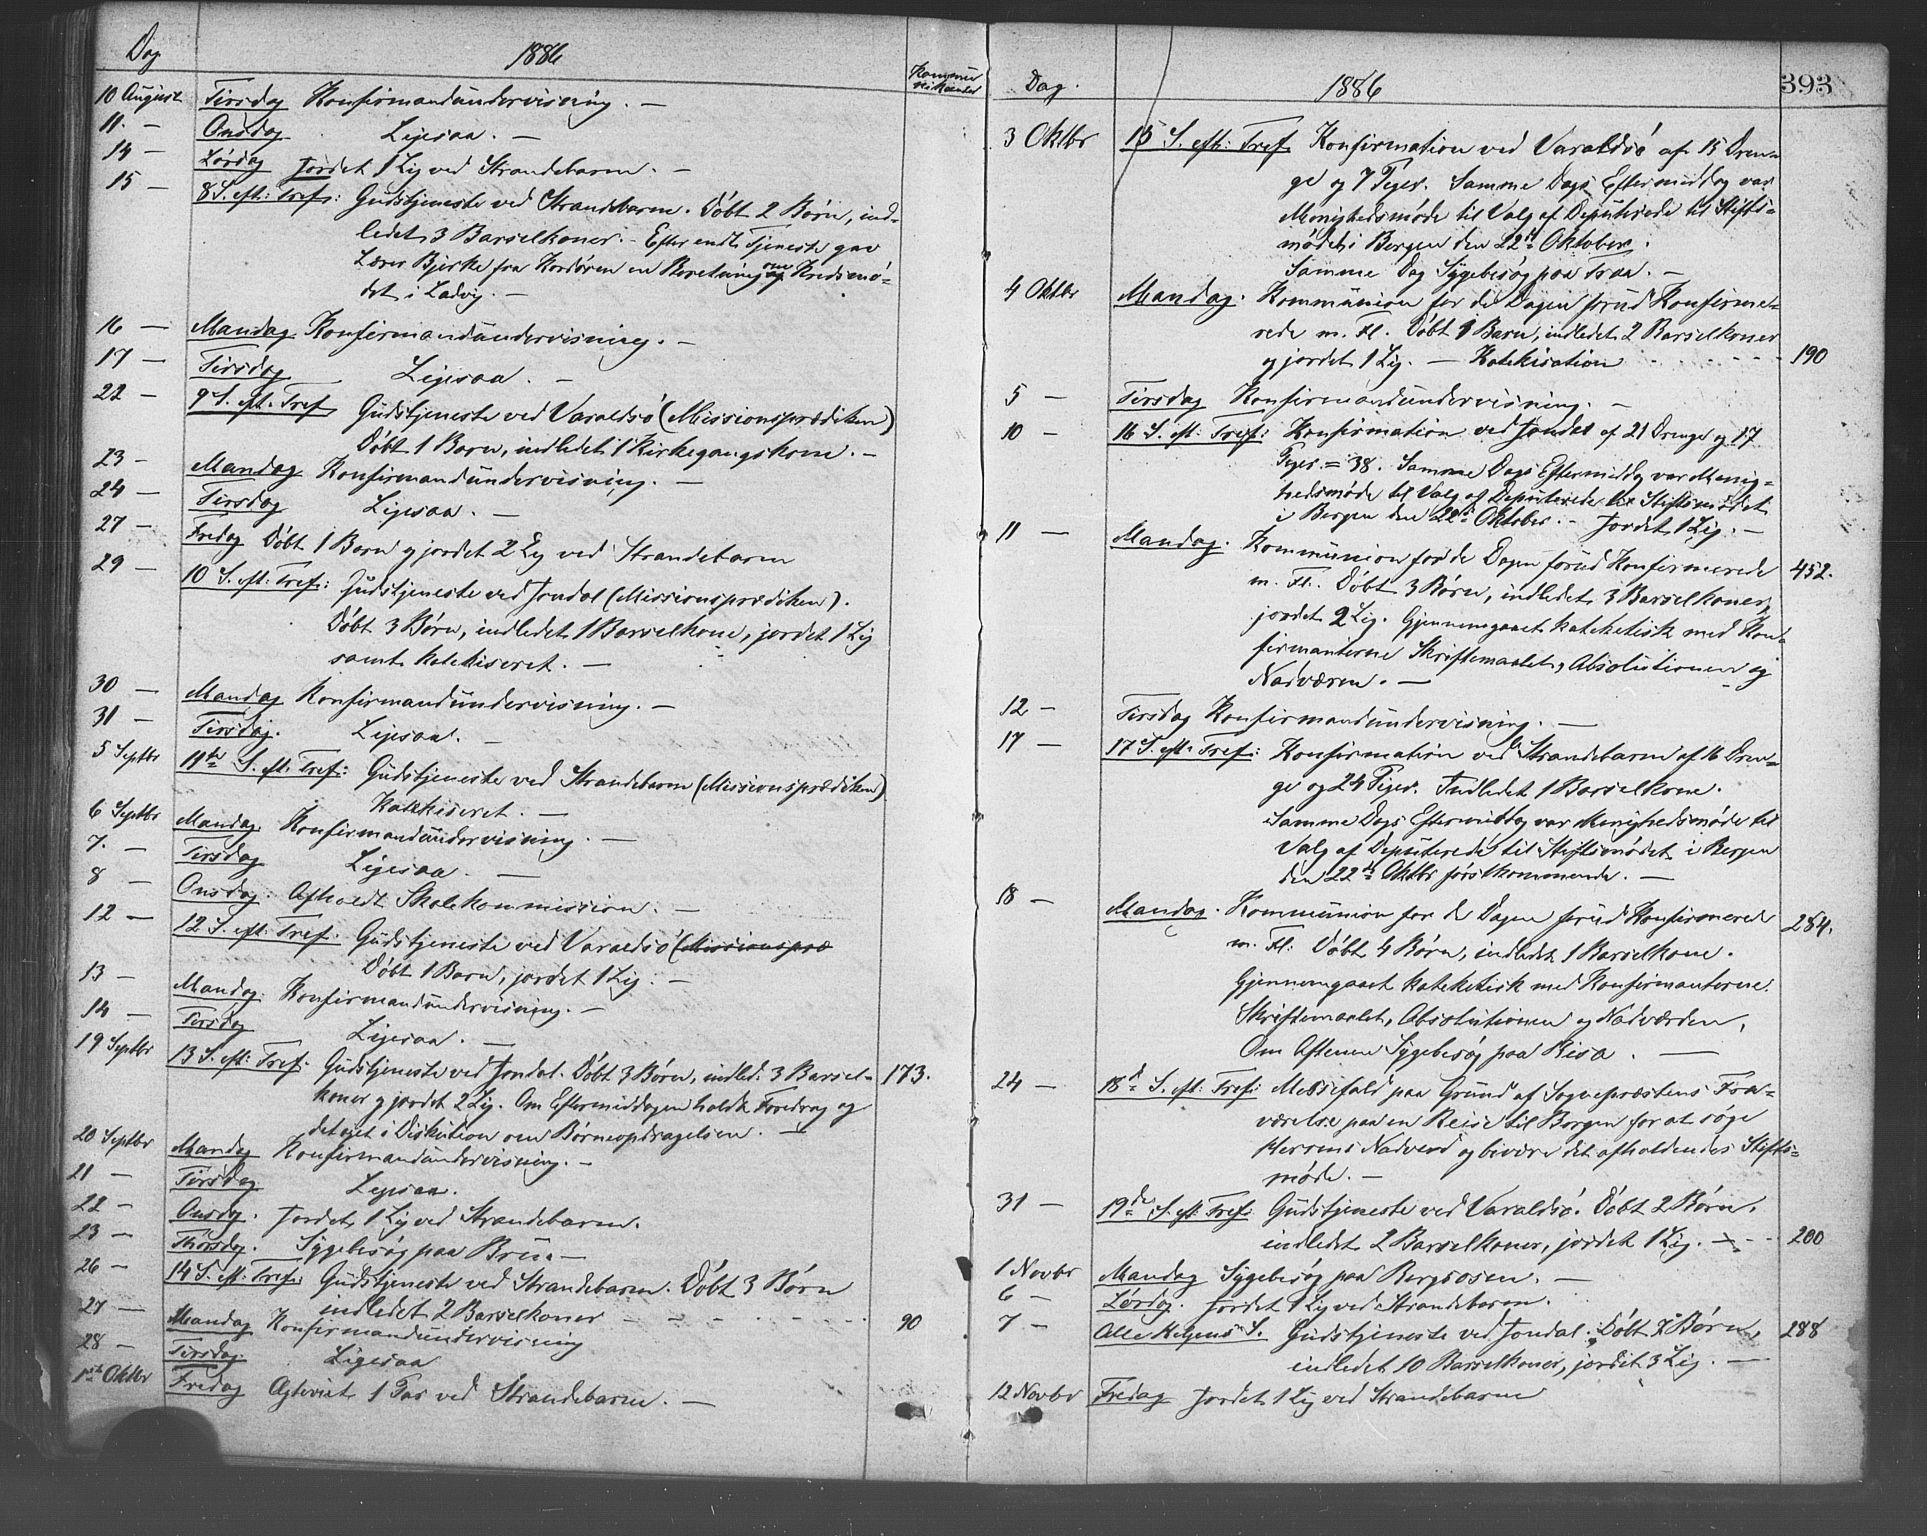 Dag 1886 Kommunikanter
10 August Tirsdag Konfirmandundervisning. —
11. — Onsdag Ligesaa. —
14 — Lørdag Jordet 1 Lig ved Strandebarm. —
15 — 8 S. eft: Tref: Gudstjeneste ved Strandebarm. Døbt 2 Børn, ind-
ledet 3 Barselkoner. — Efter endt Tjeneste gav
Lærer Bjerke fra en Beretning om Kredsmø-
det i Ladvig. —
16 — Mandag Konfirmandundervisning. —
17 — Tirsdag Ligesaa. —
22 — 9 S. eft. Tref Gudstjeneste ved Varaldsø (Missionsprædiken)
Døbt 1 Barn, indledet 1 Kirkegangskone. —
23 — Mandag Konfirmandundervisning. —
24 — Tirsdag Ligesaa. —
27 — Fredag Døbt 1 Barn og jordet 2 Lig ved Strandebarm
29 — 10 S. eft: Tref: Gudstjeneste ved Jondal (Missionsprædiken).
Døbt 3 Børn, indledet 1 Barselkone, jordet 1 Lig
samt katekiseret. —
30 — Mandag Konfirmandundervisning. —
31 — Tirsdag. Ligesaa. —
5 Septbr 11te S. eft. Tref: Gudstjeneste ved Strandebarm (Missionsprædiken)
Katekiseret. —
6 Septbr Mandag Konfirmandundervisning. —
7. — Tirsdag Ligesaa. —
8 — Onsdag. Afholdt Skolekommission. —
12 — 12 S. eft: Tref. Gudstjeneste ved Varaldsø (Missionspræ
Døbt 1 Barn, jordet 1 Lig. —
13 — Mandag. Konfirmandundervisning. —
14 — Tirsdag Ligesaa. —
19 Septbr 13 S. eft: Tref. Gudstjeneste ved Jondal. Døbt 3 Børn, indled: 3 Barsel- 173.
koner og jordet 2 Lig. Om Eftermiddagen holdt Foredrag og
deltaget i Diskution om Børneopdragelsen. —
20 Septbr Mandag Konfirmandundervisning. —
21 — Tirsdag Ligesaa.
22 — Onsdag. Jordet 1 Lig ved Strandebarm.
23 — Thorsdag. Sygebesøg paa Bru. —
26 — 14 S. eft: Tref: Gudstjeneste ved Strandebarm. Døbt 3 Børn
indledet 2 Barselkoner — — — 90
27 — Mandag Konfirmandundervisning
28 — Tirsdag. Ligesaa
1st Oktbr Fredag Ægteviet 1 Par ved Strandebarm. —
Dag. 1886 393
3 Oktbr 15 S. eft: Tref. Konfirmation ved Varaldsø af 15 Dren-
ge og 7 Piger. Samme Dags Eftermiddag var
Menighedsmøde til Valg af Deputerede til Stifts-
mødet i Bergen den 22de Oktober.
Samme Dag Sygebesøg paa Traa. —
4 Oktbr Mandag. Kommunion for de Dagen forud Konfirme-
rede m. Fl. Døbt 1 Barn, indledet 2 Barselkoner
og jordet 1 Lig. — Katekisation 190
5 — Tirsdag Konfirmandundervisning. —
10 — 16 S. eft: Tref: Konfirmation ved Jondal af 21 Drenge og 17
Piger. = 38. Samme Dags Eftermiddag var Menig-
hedsmøde til Valg af Deputerede til Stiftsmødet
i Bergen den 22de Oktober. — Jordet 1 Lig. —
11 — Mandag. Kommunion for de Dagen forud Konfirmerede 452.
m. Fl. Døbt 3 Børn, indledet 3 Barselkoner,
jordet 2 Lig. Gjennemgaaet kateketisk med Kon-
firmanterne Skriftemaalet, Absolutionen og
Nadveren. —
12 — Tirsdag Konfirmandundervisning. —
17 — 17 S. eft. Tref: Konfirmation ved Strandebarm af 16 Dren-
ge og 24 Piger. Indledet 1 Barselkone.
Samme Dags Eftermiddag var Menighedsmøde til
Valg af Deputerede til Stiftsmødet i Bergen
den 22de Oktbr førstkommende. —
18 — Mandag. Kommunion for de Dagen forud Konfirmerede 284.
m. Fl: Døbt 4 Børn, indledet 1 Barselkone.
Gjennemgaaet kateketisk med Konfirmanterne
Skriftemaalet, Absolutionen og Nadverden.
Om Aftenen Sygebesøg paa Risa. —
24 — 18d S. eft. Tref: Messefald paa Grund af Sognepræstens Fra-
værelse paa en Reise til Bergen for at søge
Herrens Nadverd og bivære det afholdendes Stifts-
møde. —
31 — 19de S. eft. Tref: Gudstjeneste ved Varaldsø. Døbt 2 Børn,
indledet 2 Barselkoner, jordet 1 Lig. — 200
1 Novbr Mandag Sygebesøg paa Bergsosen. —
6 — Lørdag. Jordet 1 Lig ved Strandebarm.
7 — Alle Helgens S. Gudstjeneste ved Jondal. Døbt Børn, 288
indledet 10 Barselkoner, jordet 3 Lig. —
12 Novbr Fredag Jordet 1 Lig ved Strandebarm